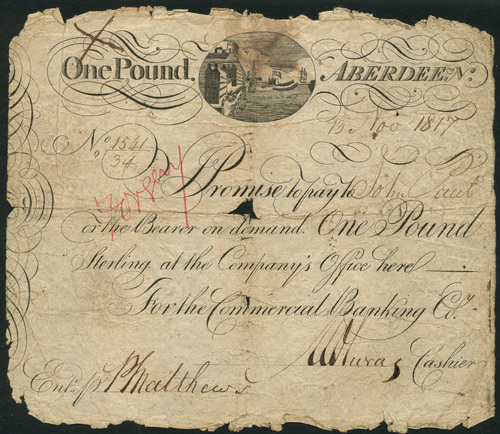 One Pound. ABERDEEN.
13 Nov 1817
No. 1541/34
Forgery
I Promise to pay to John Caut
or the Bearer on demand. One Pound
Sterling at the Company's Office here
For the Commercial Banking Coy.
Cashier
Entd. pr Matthews